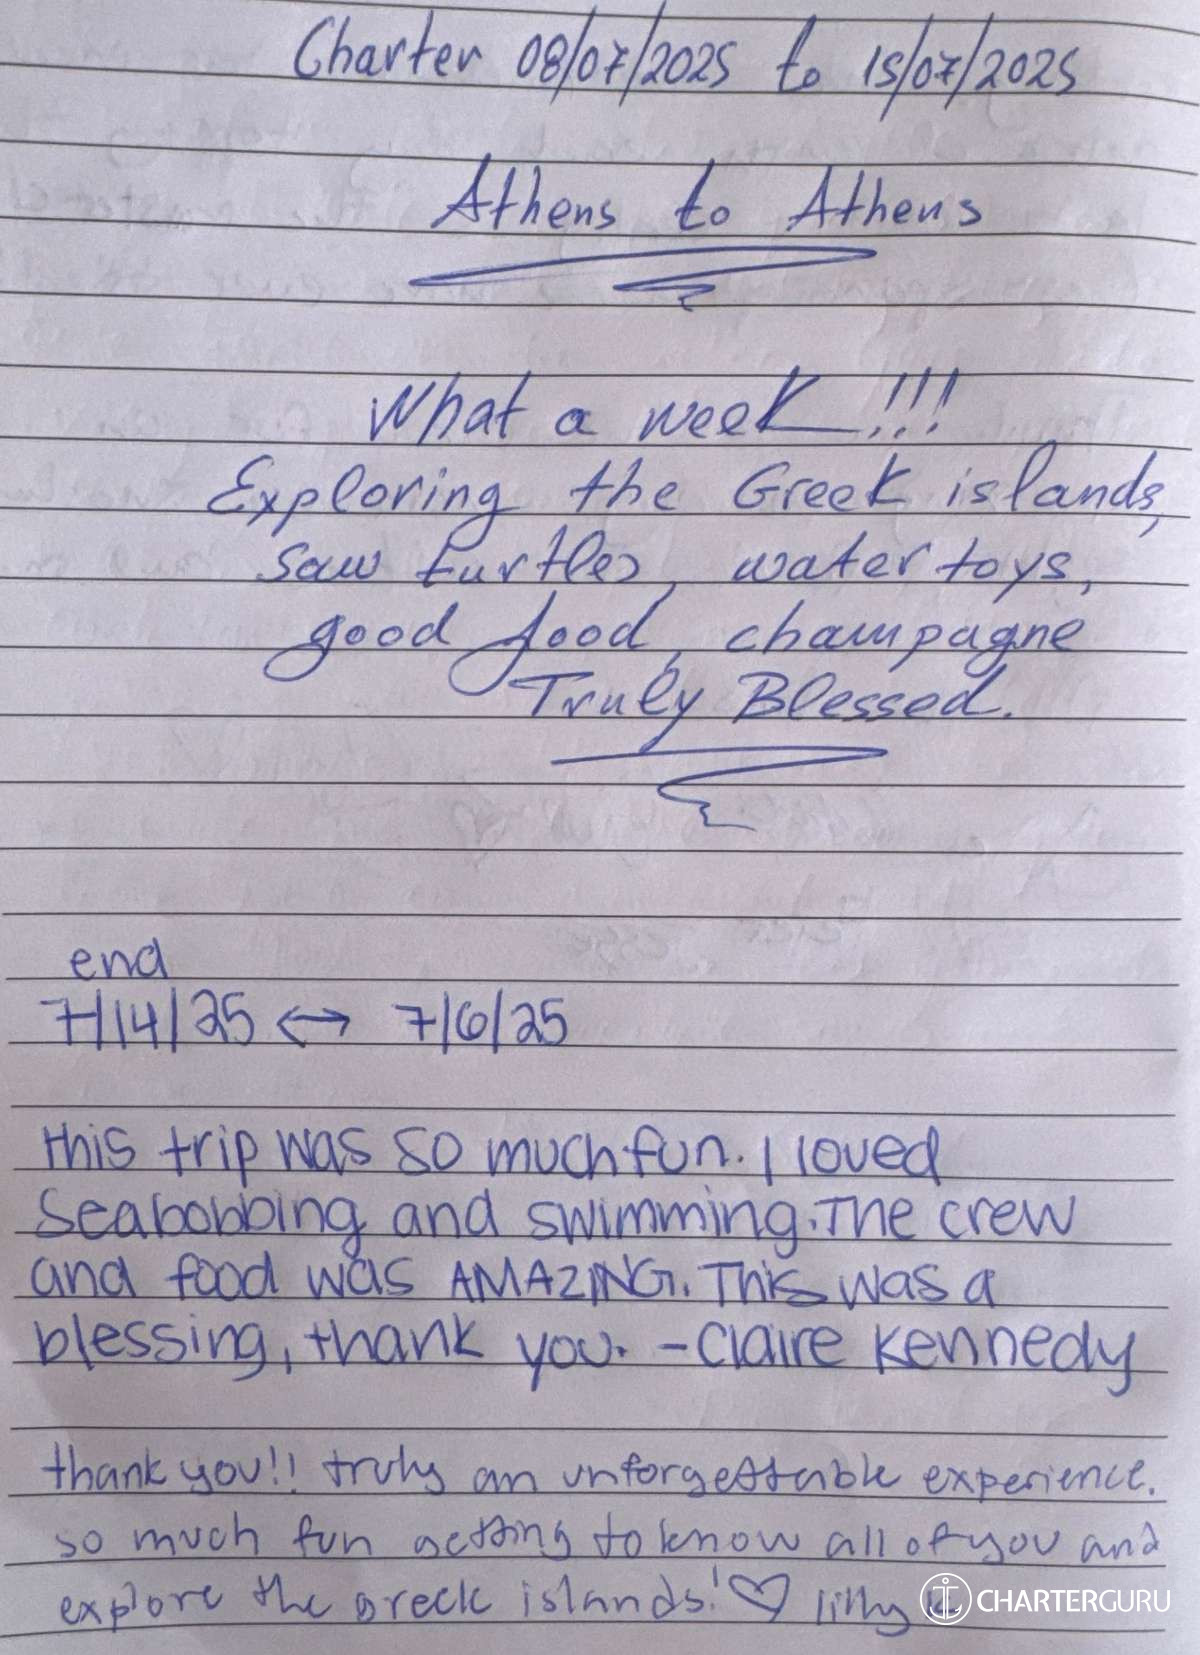 Charter 08/07/2025 to 15/07/2025
Athens to Athens
What a week!!!
Exploring the Greek islands,
saw turtles, water toys,
good food, champagne
Truly Blessed.
end
7/14/25 ↔ 7/6/25
this trip was so much fun. I loved
Seabobbing and swimming. The crew
and food was AMAZING. This was a
blessing, thank you. - Claire Kennedy
thank you!! truly an unforgettable experience.
so much fun getting to know all of you and
explore the greek islands! ♡ lilly
CHARTERGURU